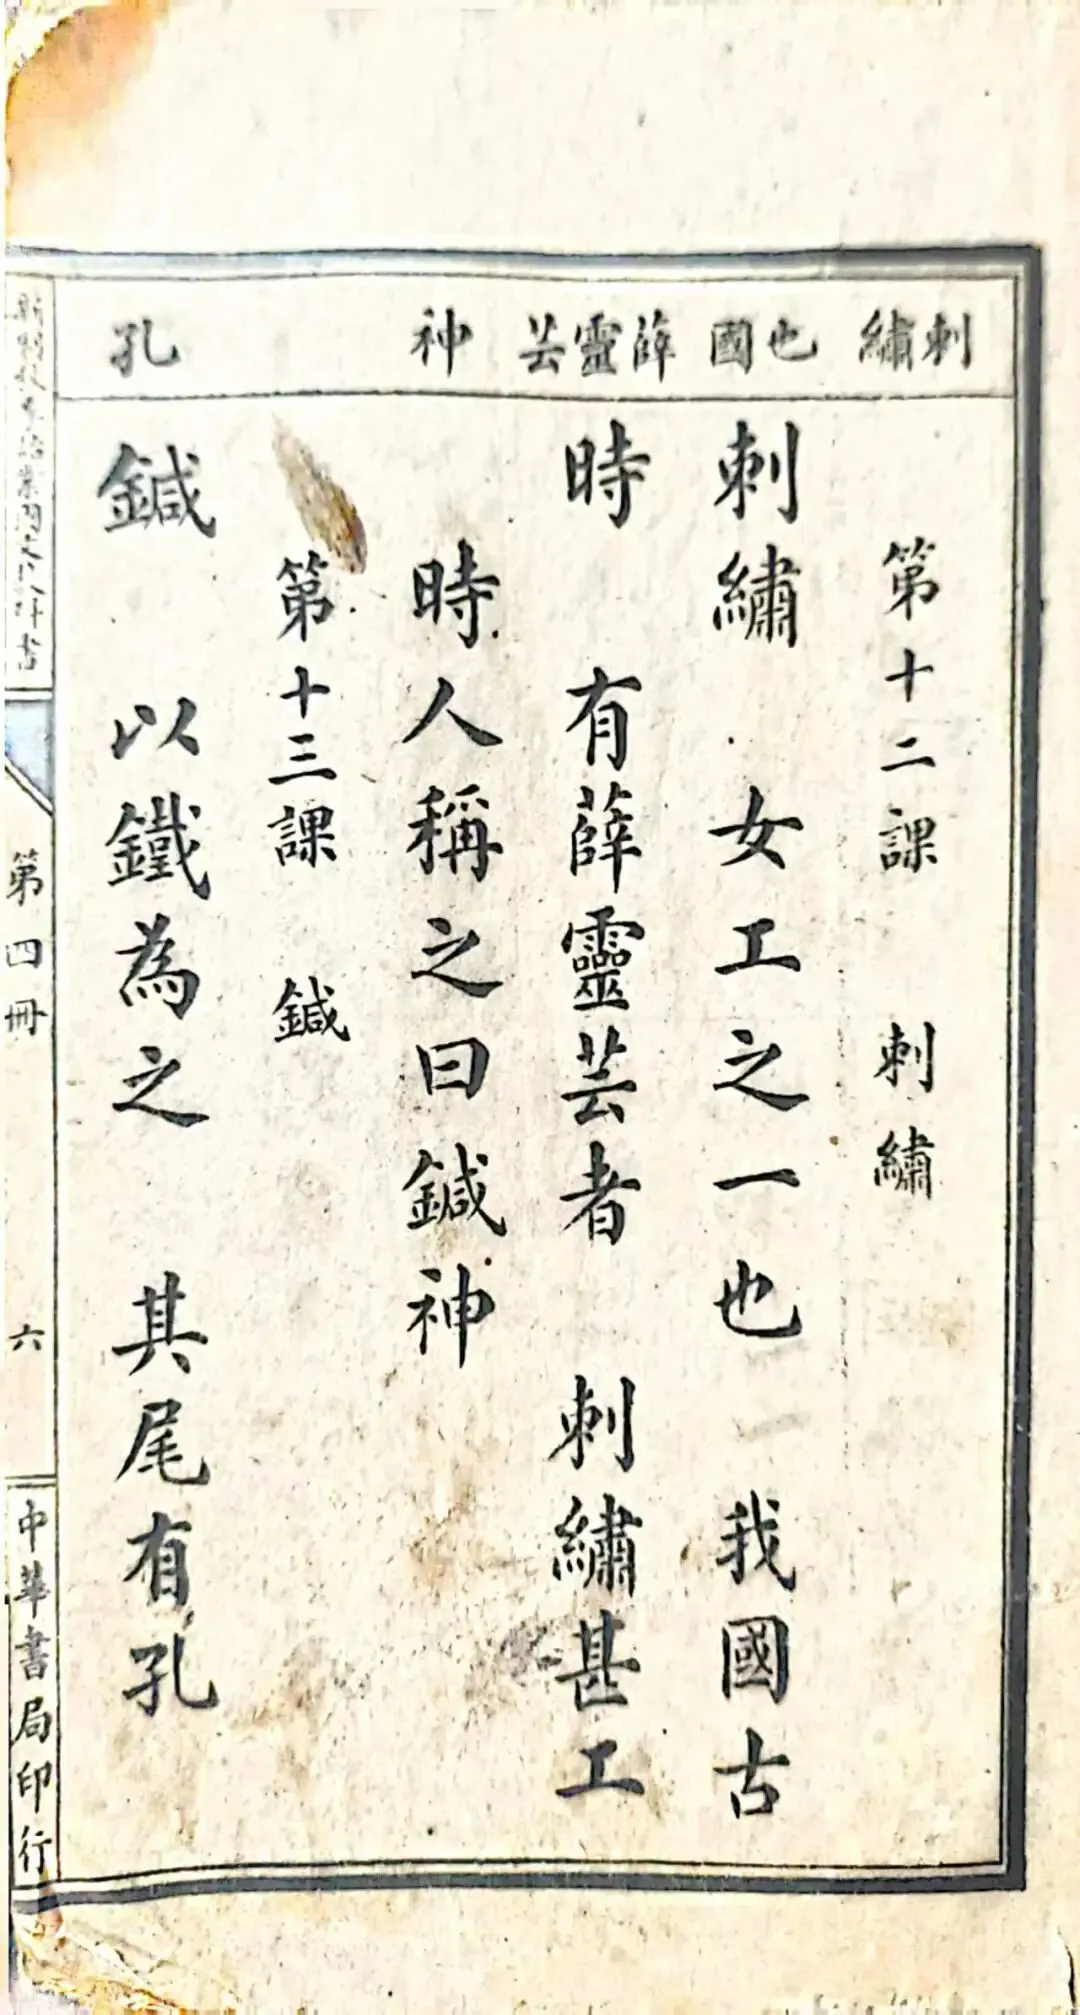 刺繡
也國
薛靈芸
神
孔
第十二課 刺繡
刺繡 女工之一也 我國古
時 有薛靈芸者 刺繡甚工
時人稱之曰鍼神
第十三課 鍼
鍼 以鐵為之 其尾有孔
書
第四冊
六
中華書局印行